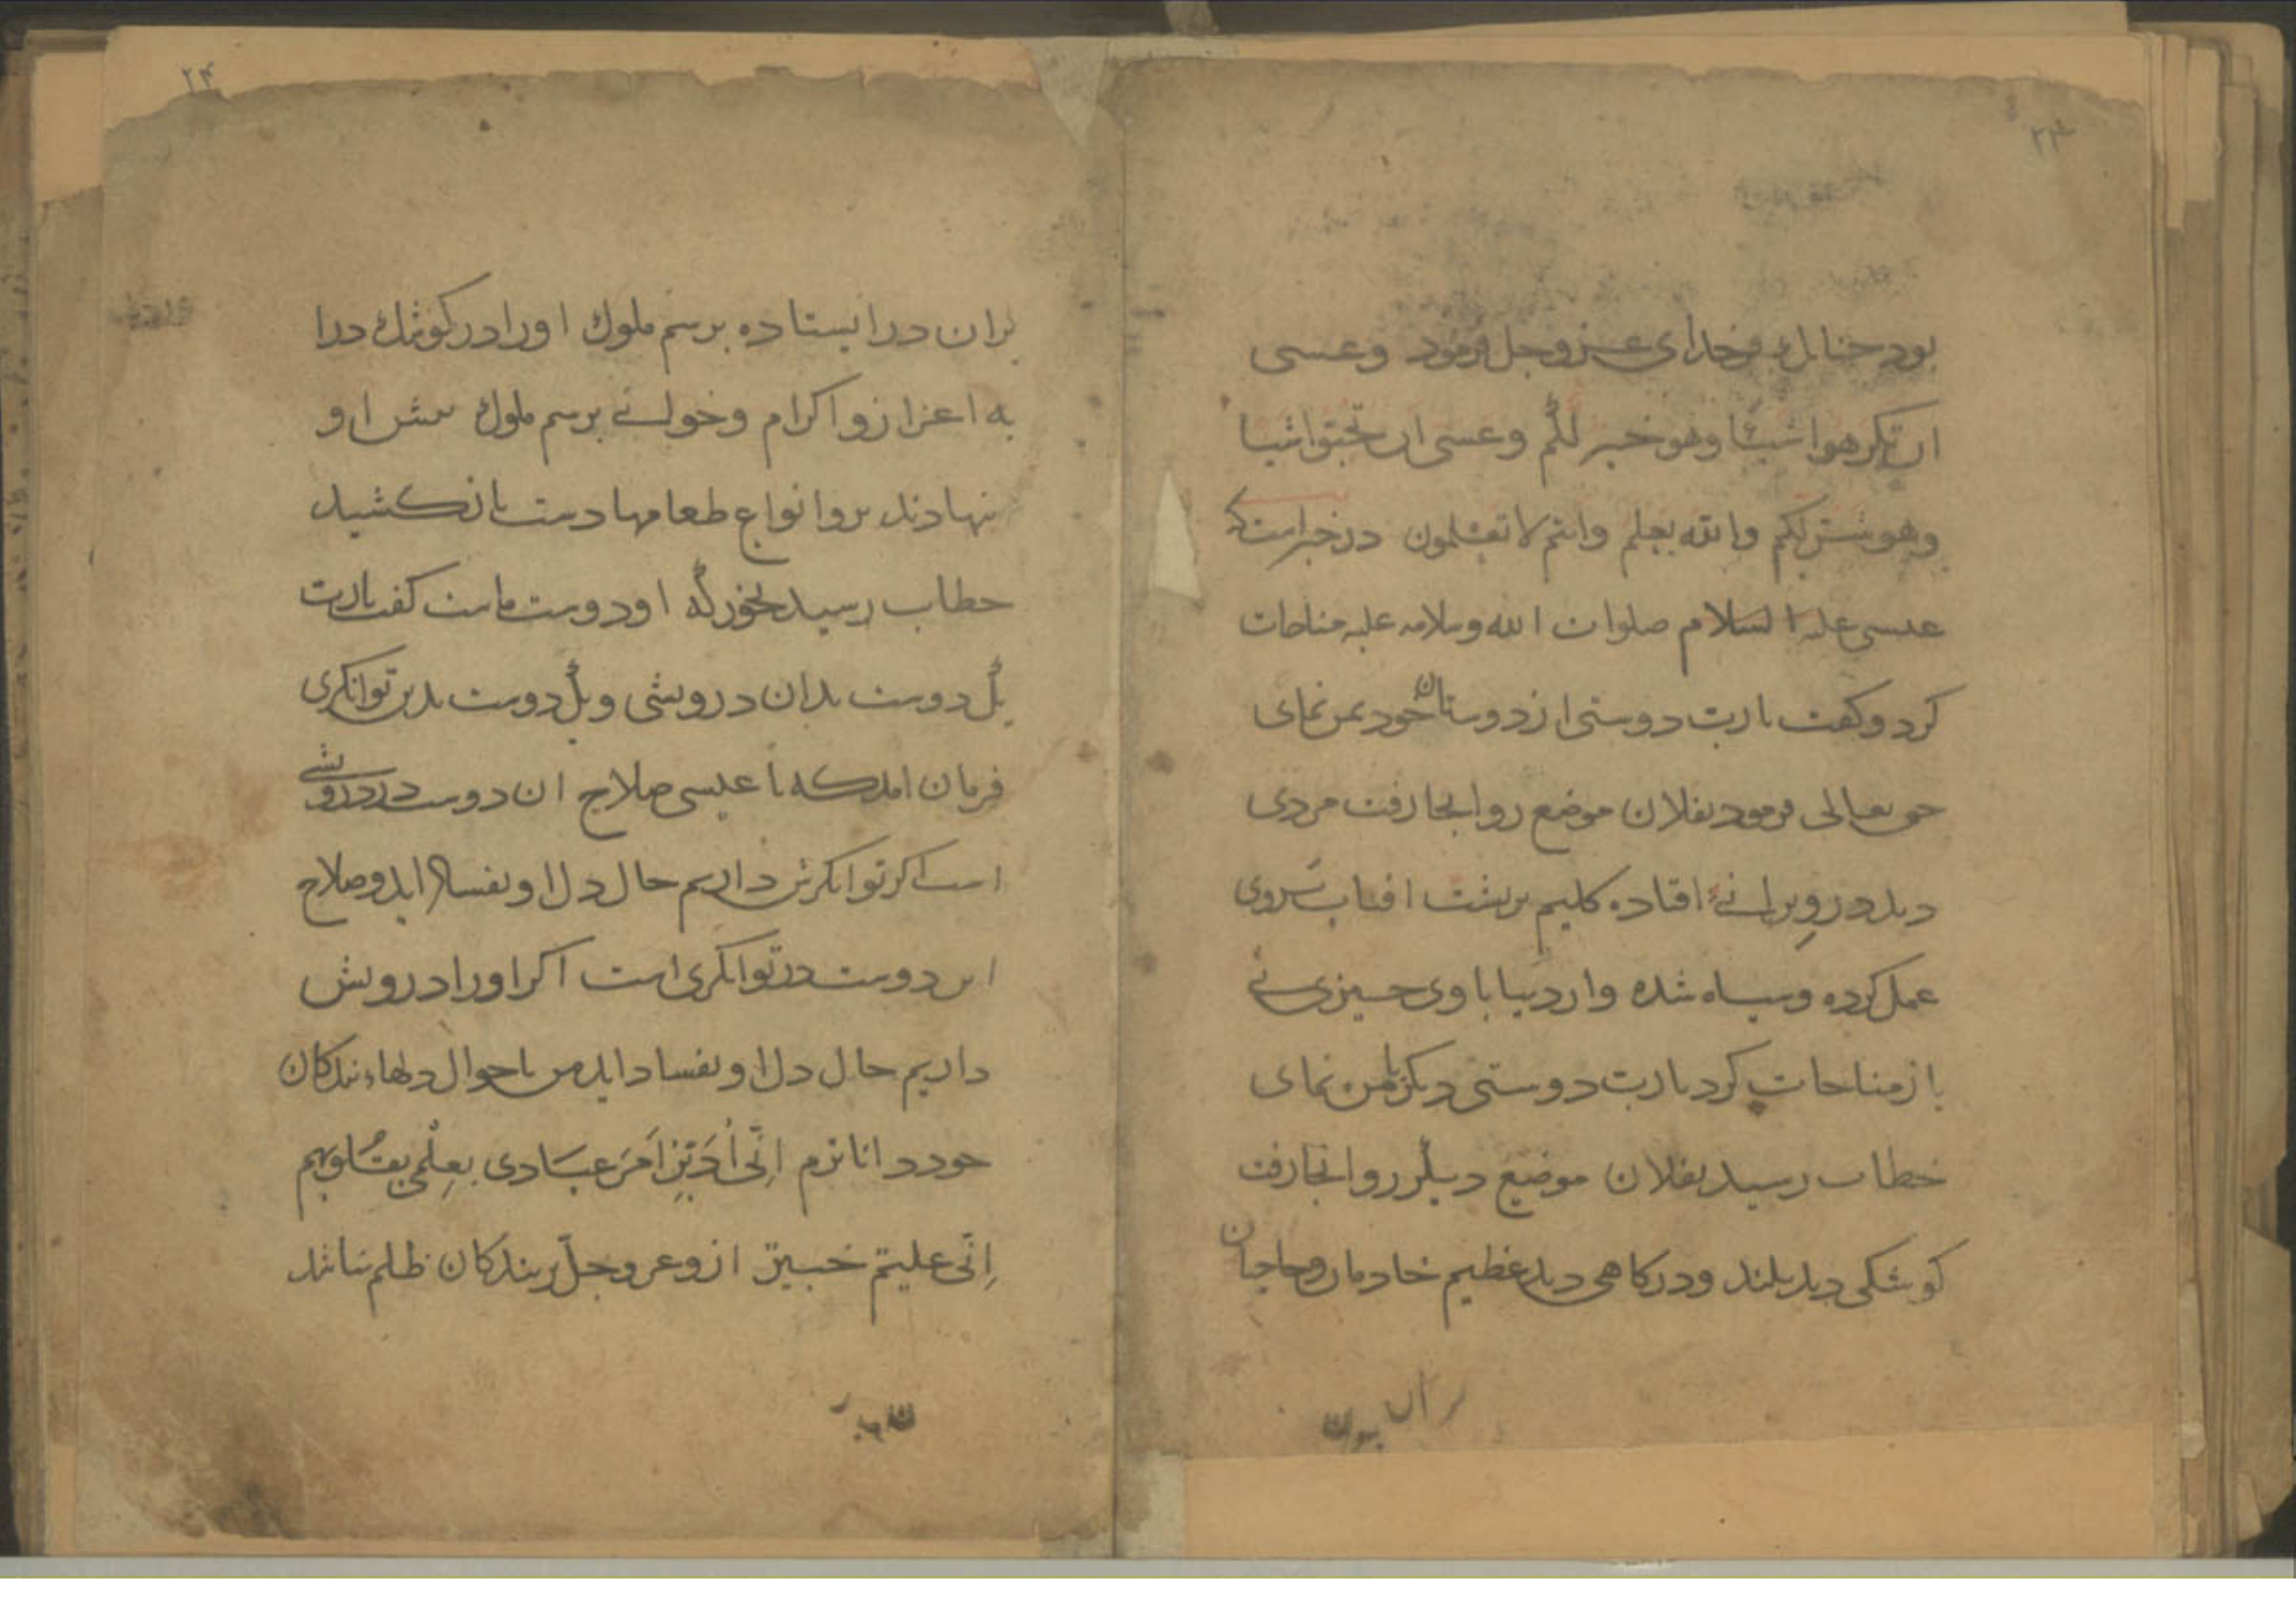 ۲۳
بود جنانك خدای عز وجل فرمود وعسی
ان تكرهوا شیئا وهو خیر لكم وعسی ان تحبوا شیا
وهو شر لكم والله یعلم وانتم لا تعلمون در خبر است كه
عیسی علیه السلام صلوات الله وسلامه علیه مناجات
كرد وكفت یا رب دوستی از دوستان خود بمن نمای
حق تعالی فرمود بفلان موضع رو انجا رفت مردی
دید در ویرانۀ افتاده كلیم بر پشت افتاب بروی
عمل كرده وسیاه شده واز دنیا با وی جیزی نی
باز مناجات كرد یا رب دوستی دیكر بمن نمای
خطاب رسید بفلان موضع دیكر رو انجا رفت
كوشكی دید بلند ودركاهی دید عظیم خادمان وحاجبان
بران در
۲۴
بران در ایستاده برسم ملوك او را در كوشك درا
به اعزاز واكرام وخوانی برسم ملوك پیش او
نهادند برو انواع طعامها دست باز كشید
خطاب رسید بخور كه او دوست ماست كفت یا رب
یك دوست بدان درویشی ویك دوست بدین توانكری
فرمان امد كه یا عیسی صلاح ان دوست در درویشی
است اكر توانكرش داریم حال دل او بفساد اید وصلاح
این دوست در توانكری است اكر او را درویش
داریم حال دل او بفساد اید من باحوال دلهاء بندكان
خود داناترم اِنّی اُدَبِّرُ اَمرَ عِبَادی بعِلْمی بقُلُوبهم
اِنّی علیم خبیر ازو عز وجل بر بندكان ظلم نباشد